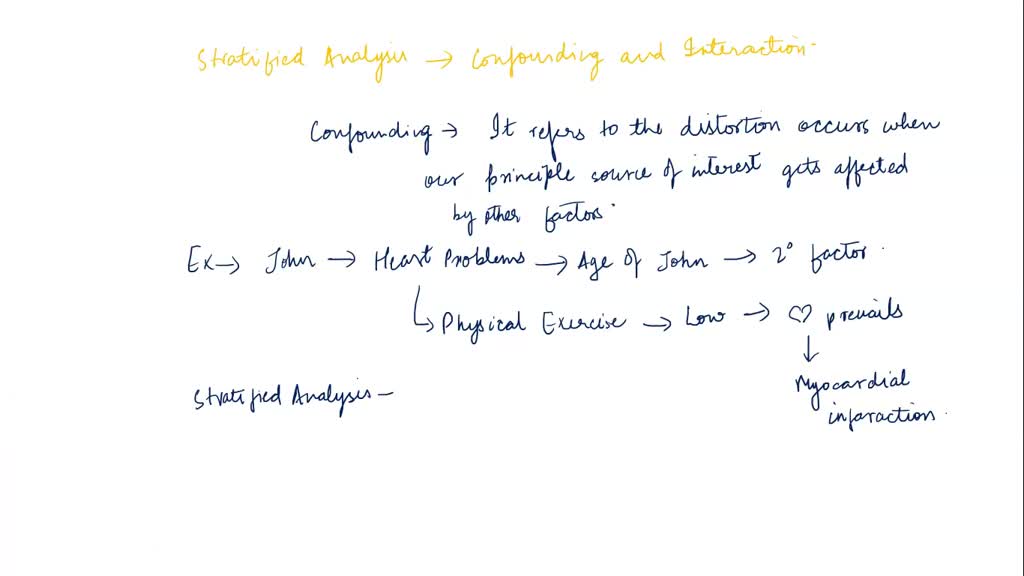 Stratified Analysis → Confounding and Interaction-
Confounding → It refers to the distortion occurs when
our principle source of interest gets affected
by other factors.
Ex → John → Heart Problems → Age of John → 2° factor.
↳ Physical Exercise → Low → ♡ prevails
↓
Myocardial
Stratified Analysis -
infaraction.